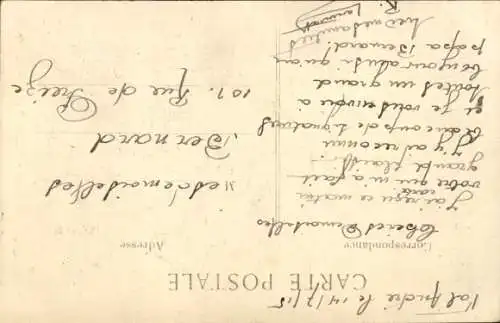 Val André le 14/7/15
CARTE POSTALE
Correspondance
Adresse
Chères Demoiselles
J'ai reçu ce matin
votre carte qui m'a fait
grand plaisir
J'y ai reconnu
beaucoup de signatures
et je vous envoie à
toutes un grand
bonjour ainsi qu'au
papa Bernard.
amitiés
R.
Mesdemoiselles
Bernard
101. Rue de Preize